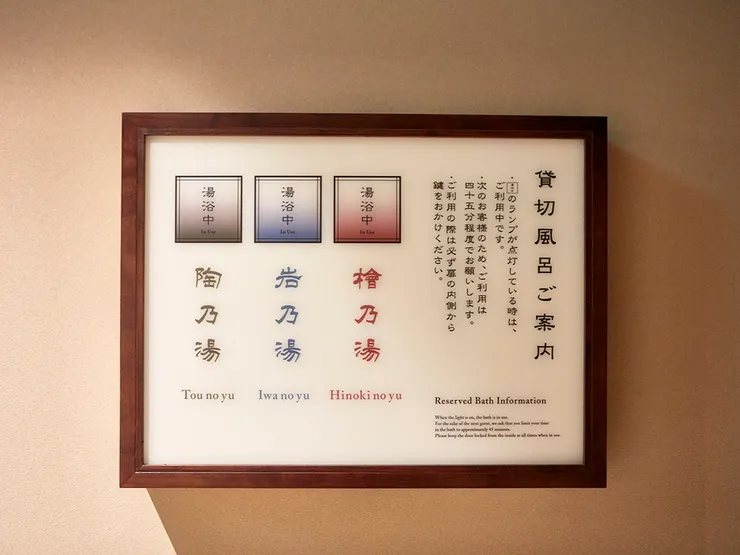 貸切風呂ご案内
・のランプが点灯している時は、
ご利用中です。
・次のお客様のため、ご利用は
四十五分程度でお願いします。
・ご利用の際は必ず扉の内側から
鍵をおかけください。
湯浴中
In Use
湯浴中
In Use
湯浴中
In Use
檜乃湯
岩乃湯
陶乃湯
Tou no yu
Iwa no yu
Hinoki no yu
Reserved Bath Information
When the light is on, the bath is in use.
For the sake of the next guest, we ask that you limit your time
in the bath to approximately 45 minutes.
Please keep the door locked from the inside at all times when in use.